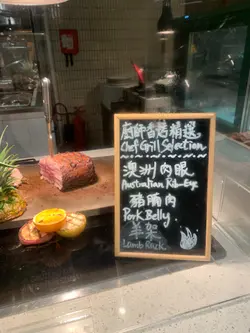 廚師香烤精選
Chef Grill Selection
澳洲肉眼
Australian Rib-Eye
豬腩肉
Pork Belly
羊架
Lamb Rack